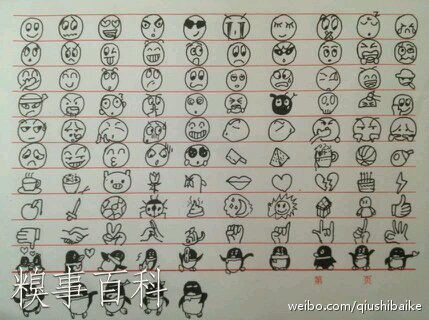 z
第 页
糗事百科
weibo.com/qiushibaike